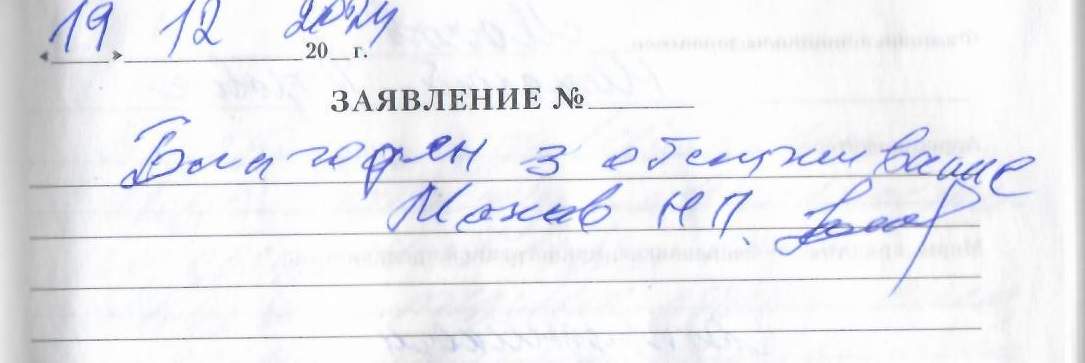 19 12 2024
« » 20 г.
ЗАЯВЛЕНИЕ №
Благодрян з обслуживание
Н.П.